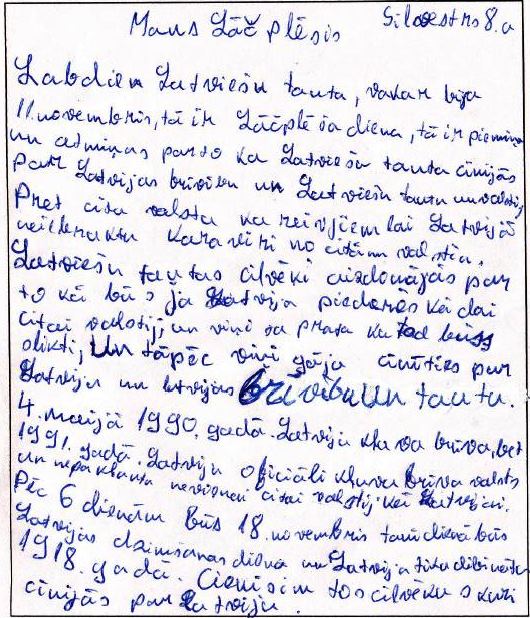 Mans Lāčplēsis Silvestrs 8.a
Labdien Latviešu tauta, vakar bija
11 novembris, tā ir Lāčplēša diena, tā ir piemiņa
un atmiņas par to ka Latviešu tauta cīnijās
par Latvijas brīvību un Latviešu tautu un valsti,
Pret cita valsta kareivjiem lai Latvijā
neienāktu karavīri no citām valstīm.
Latviešu tautas cilvēki aizdomājās par
to kā būs ja Latvija piederēs kādai
citai valstij, un viņi saprata ka tad būs
slikti, Un tāpēc viņi gāja cīnīties par
Latviju un latvijas brīvību un tautu.
4. maijā 1990. gadā. Latvija kļuva brīva, bet
1991. gadā. Latvija oficiāli kļuva brīva valsts
un nepakļauta nevienai citai valstij kā Latvijai.
Pēc 6 dienām būs 18. novembris tamdienā būs
Latvijas dzimšanas diena un Latvija tika dibināta
1918. gadā. Cienīsim tos cilvēkus kuri
cīnijās par Latviju.